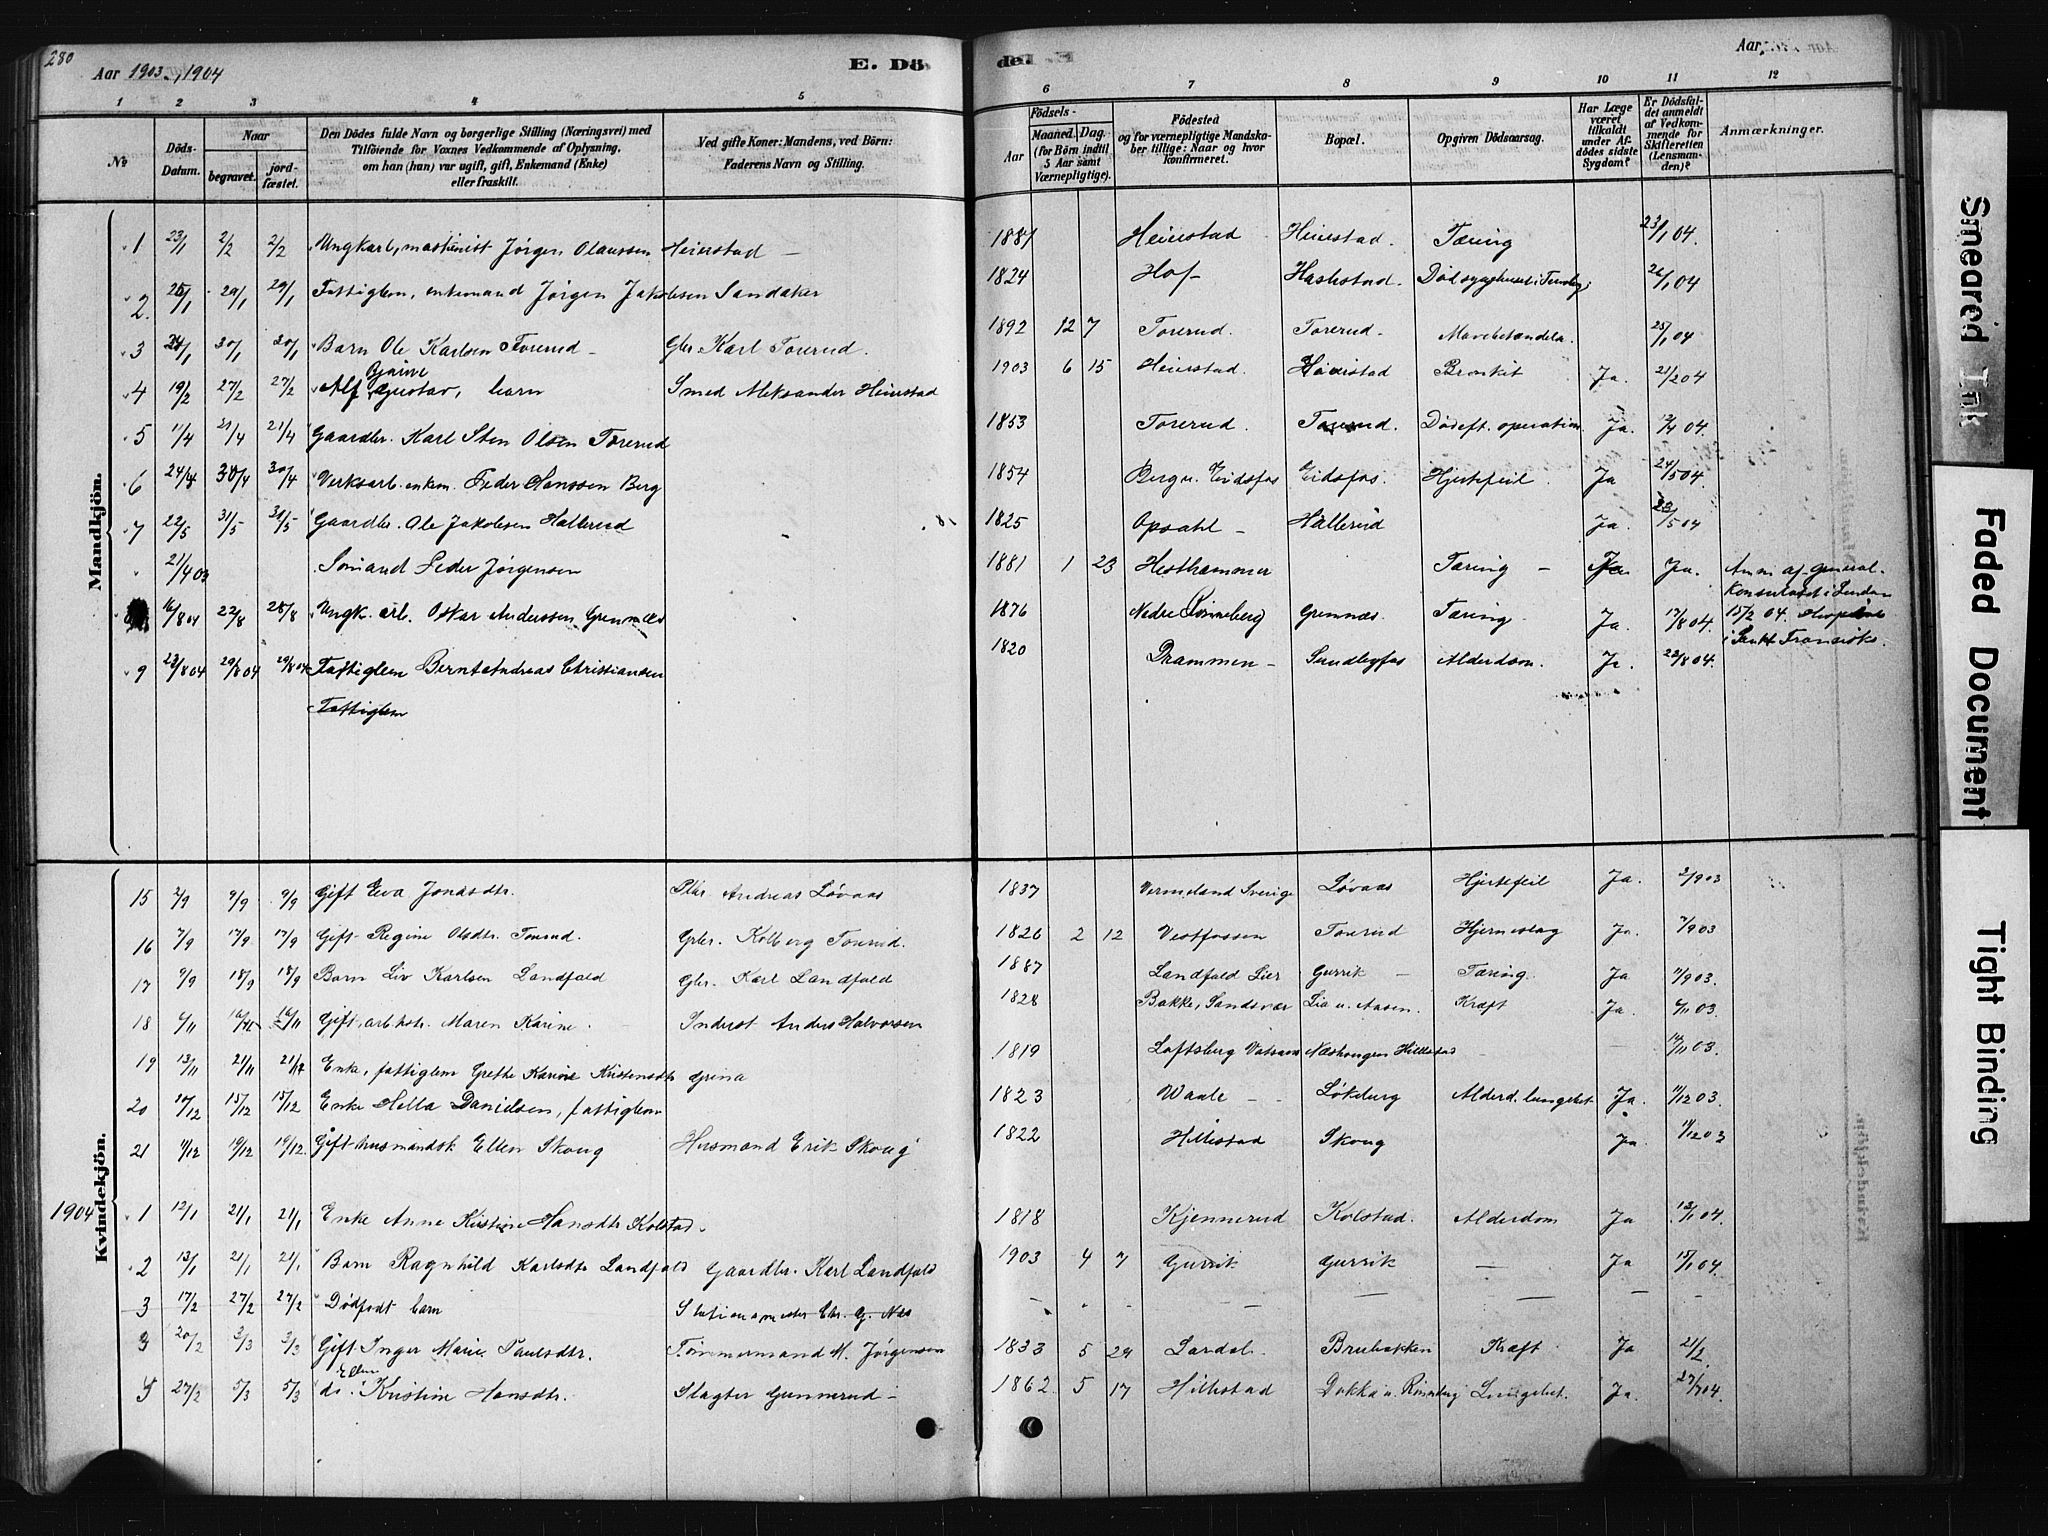 280
Aar 1903, 1904
E. Dö
de
Aar
1 2 3 4 5 6 7 8 9 10 11 12
No
Döds-Datum.
Naar
begravet.
jord-fæstet.
Den Dödes fulde Navn og borgerlige Stilling (Næringsvei) med
Tilföiende for Voxnes Vedkommende af Oplysning,
om han (hun) var ugift, gift, Enkemand (Enke)
eller fraskilt.
Ved gifte Koner: Mandens, ved Börn:
Faderens Navn og Stilling.
Födsels-
Aar
Maaned. Dag.
(for Börn indtil
5 Aar samt
Værnepligtige).
Födested
og for værnepligtige Mandska-
ber tillige: Naar og hvor
konfirmeret.
Bopæl.
Opgiven Dödsaarsag.
Har Læge
været
tilkaldt
under Af-
dödes sidste
Sygdom?
Er Dödsfal-
det anmeldt
af Vedkom-
mende for
Skifteretten
(Lensman-
den)?
Anmærkninger.
Mandkjön.
1 23/1 2/2 2/2 Ungkarl, maskinist Jörgen Olaussen Heierstad 1881 Heierstad Heierstad. Tæring 23/1 04.
2. 25/1 29/1 29/1 Fattiglem, enkemand Jörgen Jakobsen Sandaker 1824 Hof Haslestad. 26/1 04
3 30/1 30/1 Barn Ole Karlsen Torerud Gbr. Karl Torerud. 1892 12 7 Torerud. Torerud 25/1 04
4 19/2 27/2 27/2 Alf Bjarne Gustav, barn Smed Aleksander Heierstad 1903 6 15 Heierstad. Heierstad Bronkit Ja. 21/2 04
5 11/4 21/4 21/4 Gaardbr. Karl Sten Olsen Torerud 1853 Torerud. Torerud. Död eft. operation Ja. 12/4 04.
6 24/4 30/4 30/4 Verksarb. enkem. Peder Hanssen Berg 1854 Berg u. Eidsfos Eidsfos. Hjertefeil Ja 24/5 04.
7 22/5 31/5 31/5 Gaardbr. Ole Jakobsen Hallerud 1825 Opsahl Hallerud Ja. 23/5 04
21/4 03 Sömand Peder Jörgensen 1881 1 23 Hesthammer Tæring Ja. Anm. af general-
konsulatet i London
15/2 04.
i Sankt Francisko.
16/8 04 22/8 28/8 Ungk. arb. Oskar Anderssen Grennæs 1876 Nedre Rönneberg Grennæs. Tæring Ja. 17/8 04.
9 23/8 04 29/8 04 29/8 04 Fattiglem Bernt Andreas Christiansen 1820 Drammen Sundbyfos Alderdom. Ja. 23/8 04.
Fattiglem
Kvindekjön.
15 2/9 9/9 9/9 Gift Eva Jonasdtr. Andreas Lövaas 1837 Vermeland Sverige Lövaas Hjertefeil Ja. 2/9 03
16 7/9 17/9 17/9 Gift Regine Olsdtr. Torerud. Gbr. Kolberg Torerud. 1826 2 12 Vestfossen Torerud Hjerneslag Ja. 7/9 03
17 9/9 18/9 18/9 Barn Liv Karlsen Landfald Gbr. Karl Landfald 1887 Landfald Lier Gurrik Tæring. Ja 11/9 03.
18 6/11 16/11 16/11 Gift arb.hstr. Maren Karine. Inderst Anders Halvorsen 1828 Bakke, Sandsvær Lia u. Aasen. Kræft Ja. 6/11 03.
19 13/11 21/11 21/11 Enke, fattiglem Grethe Karine Kristensdtr Grina 1819 Loftsberg Hillestad 14/11 03.
20 10/12 15/12 15/12 Enke Hella Danielsen, fattiglem 1823 Waale Lökeberg Alderd. lungebet. Ja. 11/12 03.
21 11/12 19/12 19/12. Gift husmandsk Ellen Skoug Husmand Erik Skoug 1822 Hillestad Skoug Ja. 11/12 03
1904
1 12/1 21/1 21/1 Enke Anne Kirstine Hansdtr Kolstad. 1818 Kjennerud Kolstad. Alderdom Ja 13/1 04.
2 13/1 21/1 21/1 Barn Ragnhild Karlsdtr Landfald Gaardbr. Karl Landfald 1903 4 7 Gurrik Gurrik Ja 15/1 04.
3 17/2 27/2 27/2 Dödfödt barn Stationsmester Chr. G. Næs
20/2 3/3 3/3 Gift Inger Marie Paulsdtr. Tömmermand M. Jörgensen 1833 5 29 Lardal. Brubakken Kræft Ja 21/2.
27/2 5/3 5/3 do. Ellen Kristine Hansdtr. Slagter Gunnerud 1862. 5 17 Hillestad Dokka u. Rönneberg Lungebet. Ja. 04.
Smeared Ink
Faded Document
Tight Binding